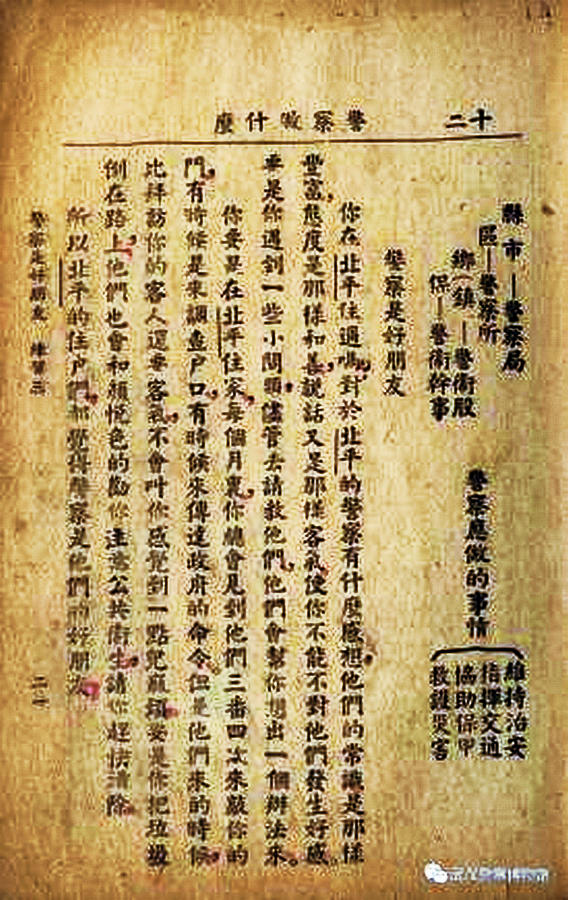 十二 警察做什麼
縣市—警察局
區—警察所
鄉(鎮)—警衛股
保—警衛幹事
警察應做的事情
維持治安
指揮交通
協助保甲
救護災害
警察是好朋友
你在北平住過嗎，對於北平的警察有什麼感想，他們的常識是那樣
豐富，態度是那樣和善，說話又是那樣客氣，使你不能不對他們發生好感。
要是你遇到一些小問題，儘管去請教他們，他們會幫你想出一個辦法來。
你要是在北平住家，每個月裏，你總會見到他們三番四次來敲你的
門，有時候是來調查戶口，有時候來傳達政府的命令，但是他們來的時候，
比拜訪你的客人還要客氣，不會叫你感覺到一點兒麻煩，要是你把垃圾
倒在路上，他們也會和顏悅色的勸你注意公共衛生，請你趕快清除。
所以北平的住戶們，都覺得警察是他們的好朋友。
警察是好朋友 練習三